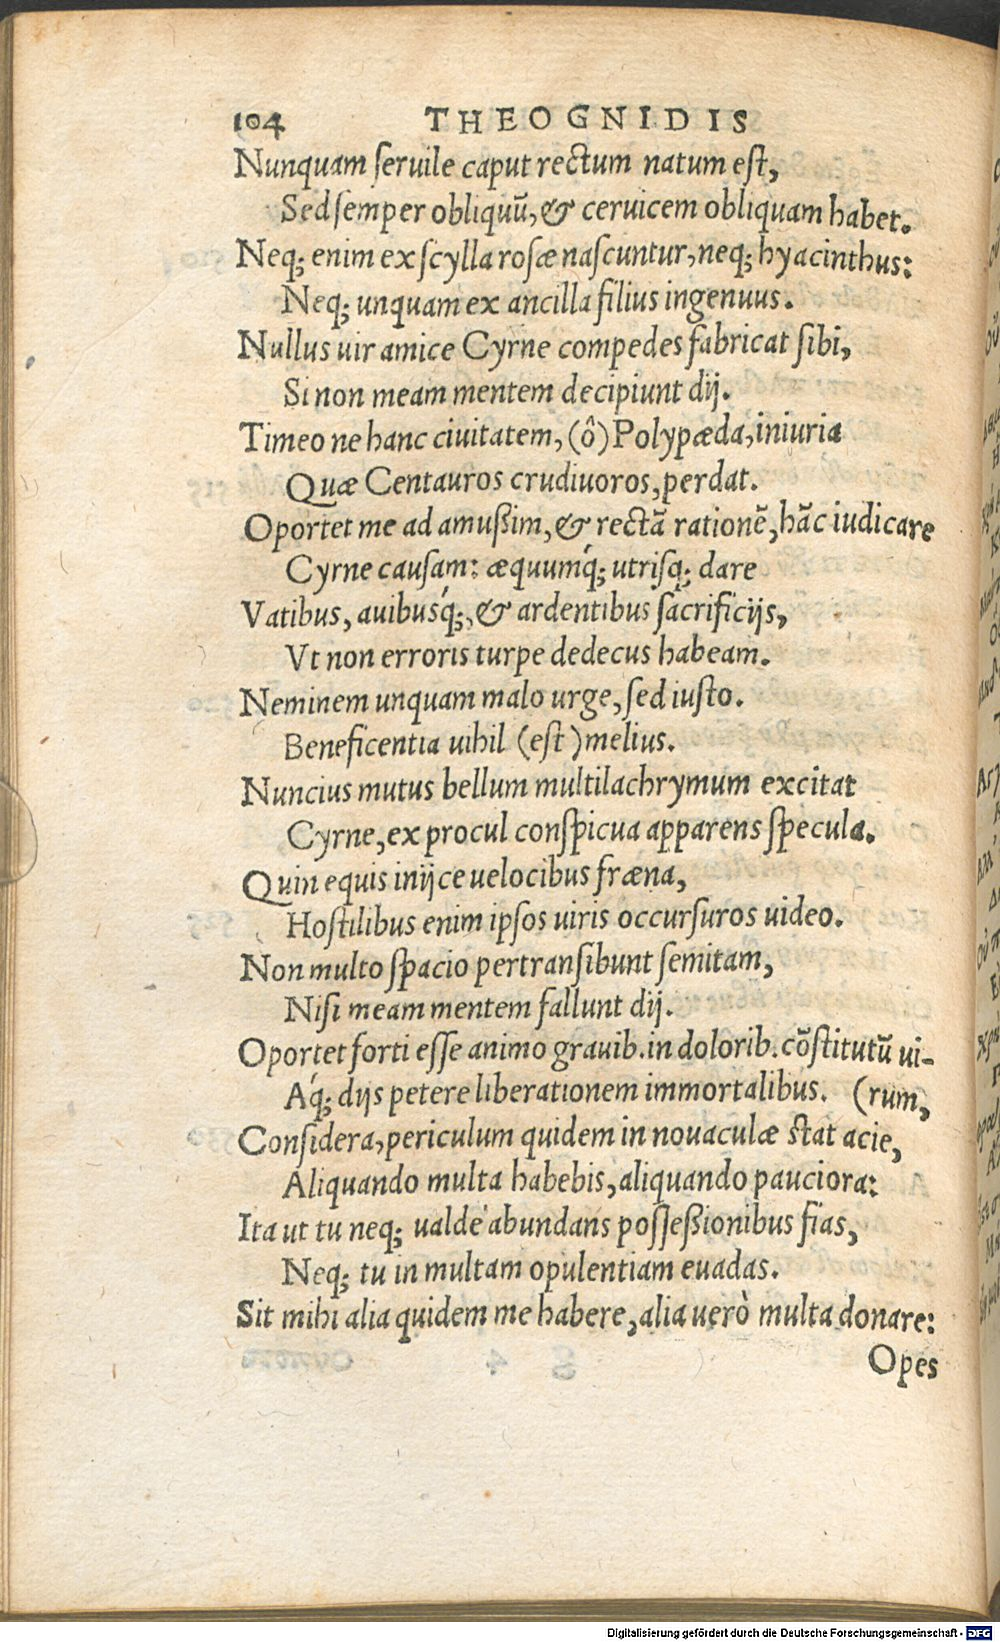 104 THEOGNIDIS
Nunquam ſeruile caput rectum natum eſt,
Sed ſemper obliquū, & ceruicem obliquam habet.
Neq; enim ex ſcylla roſæ naſcuntur, neq; hyacinthus:
Neq; unquam ex ancilla filius ingenuus.
Nullus uir amice Cyrne compedes fabricat ſibi,
Si non meam mentem decipiunt dij.
Timeo ne hanc ciuitatem, (ô) Polypæda, iniuria
Quæ Centauros crudiuoros, perdat.
Oportet me ad amußim, & rectā rationē, hāc iudicare
Cyrne cauſam: æquumq́; utriſq; dare
Vatibus, auibusq́;, & ardentibus ſacrificijs,
Vt non erroris turpe dedecus habeam.
Neminem unquam malo urge, ſed iuſto.
Beneficentia uihil (eſt) melius.
Nuncius mutus bellum multilachrymum excitat
Cyrne, ex procul conſpicua apparens ſpecula.
Quin equis inijce uelocibus fræna,
Hoſtilibus enim ipſos uiris occurſuros uideo.
Non multo ſpacio pertranſibunt ſemitam,
Niſi meam mentem fallunt dij.
Oportet forti eſſe animo grauib. in dolorib. cōſtitutū ui-
Aq́; dijs petere liberationem immortalibus. (rum,
Conſidera, periculum quidem in nouaculæ ſtat acie,
Aliquando multa habebis, aliquando pauciora:
Ita ut tu neq; ualde abundans poſſeßionibus fias,
Neq; tu in multam opulentiam euadas.
Sit mihi alia quidem me habere, alia uerò multa donare:
Opes
Digitalisierung gefördert durch die Deutsche Forschungsgemeinschaft - DFG